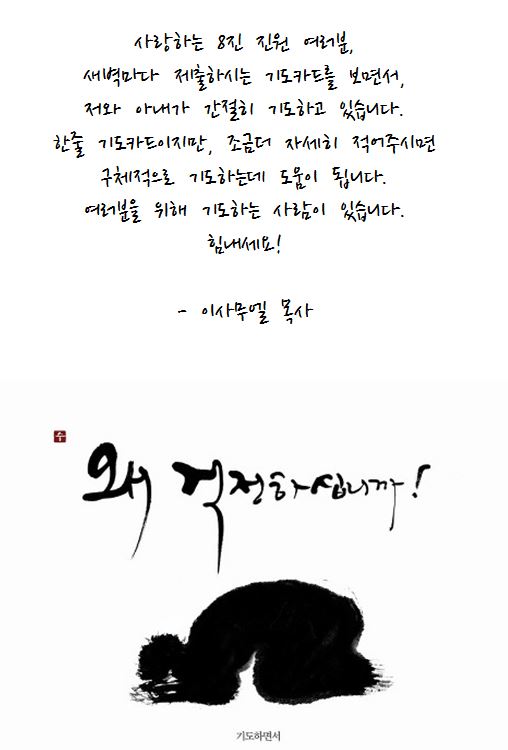 사랑하는 8진 진원 여러분,
새벽마다 제출하시는 기도카드를 보면서,
저와 아내가 간절히 기도하고 있습니다.
한줄 기도카드이지만, 조금더 자세히 적어주시면
구체적으로 기도하는데 도움이 됩니다.
여러분을 위해 기도하는 사람이 있습니다.
힘내세요!
- 이사무엘 목사
수
왜 걱정하십니까!
기도하면서